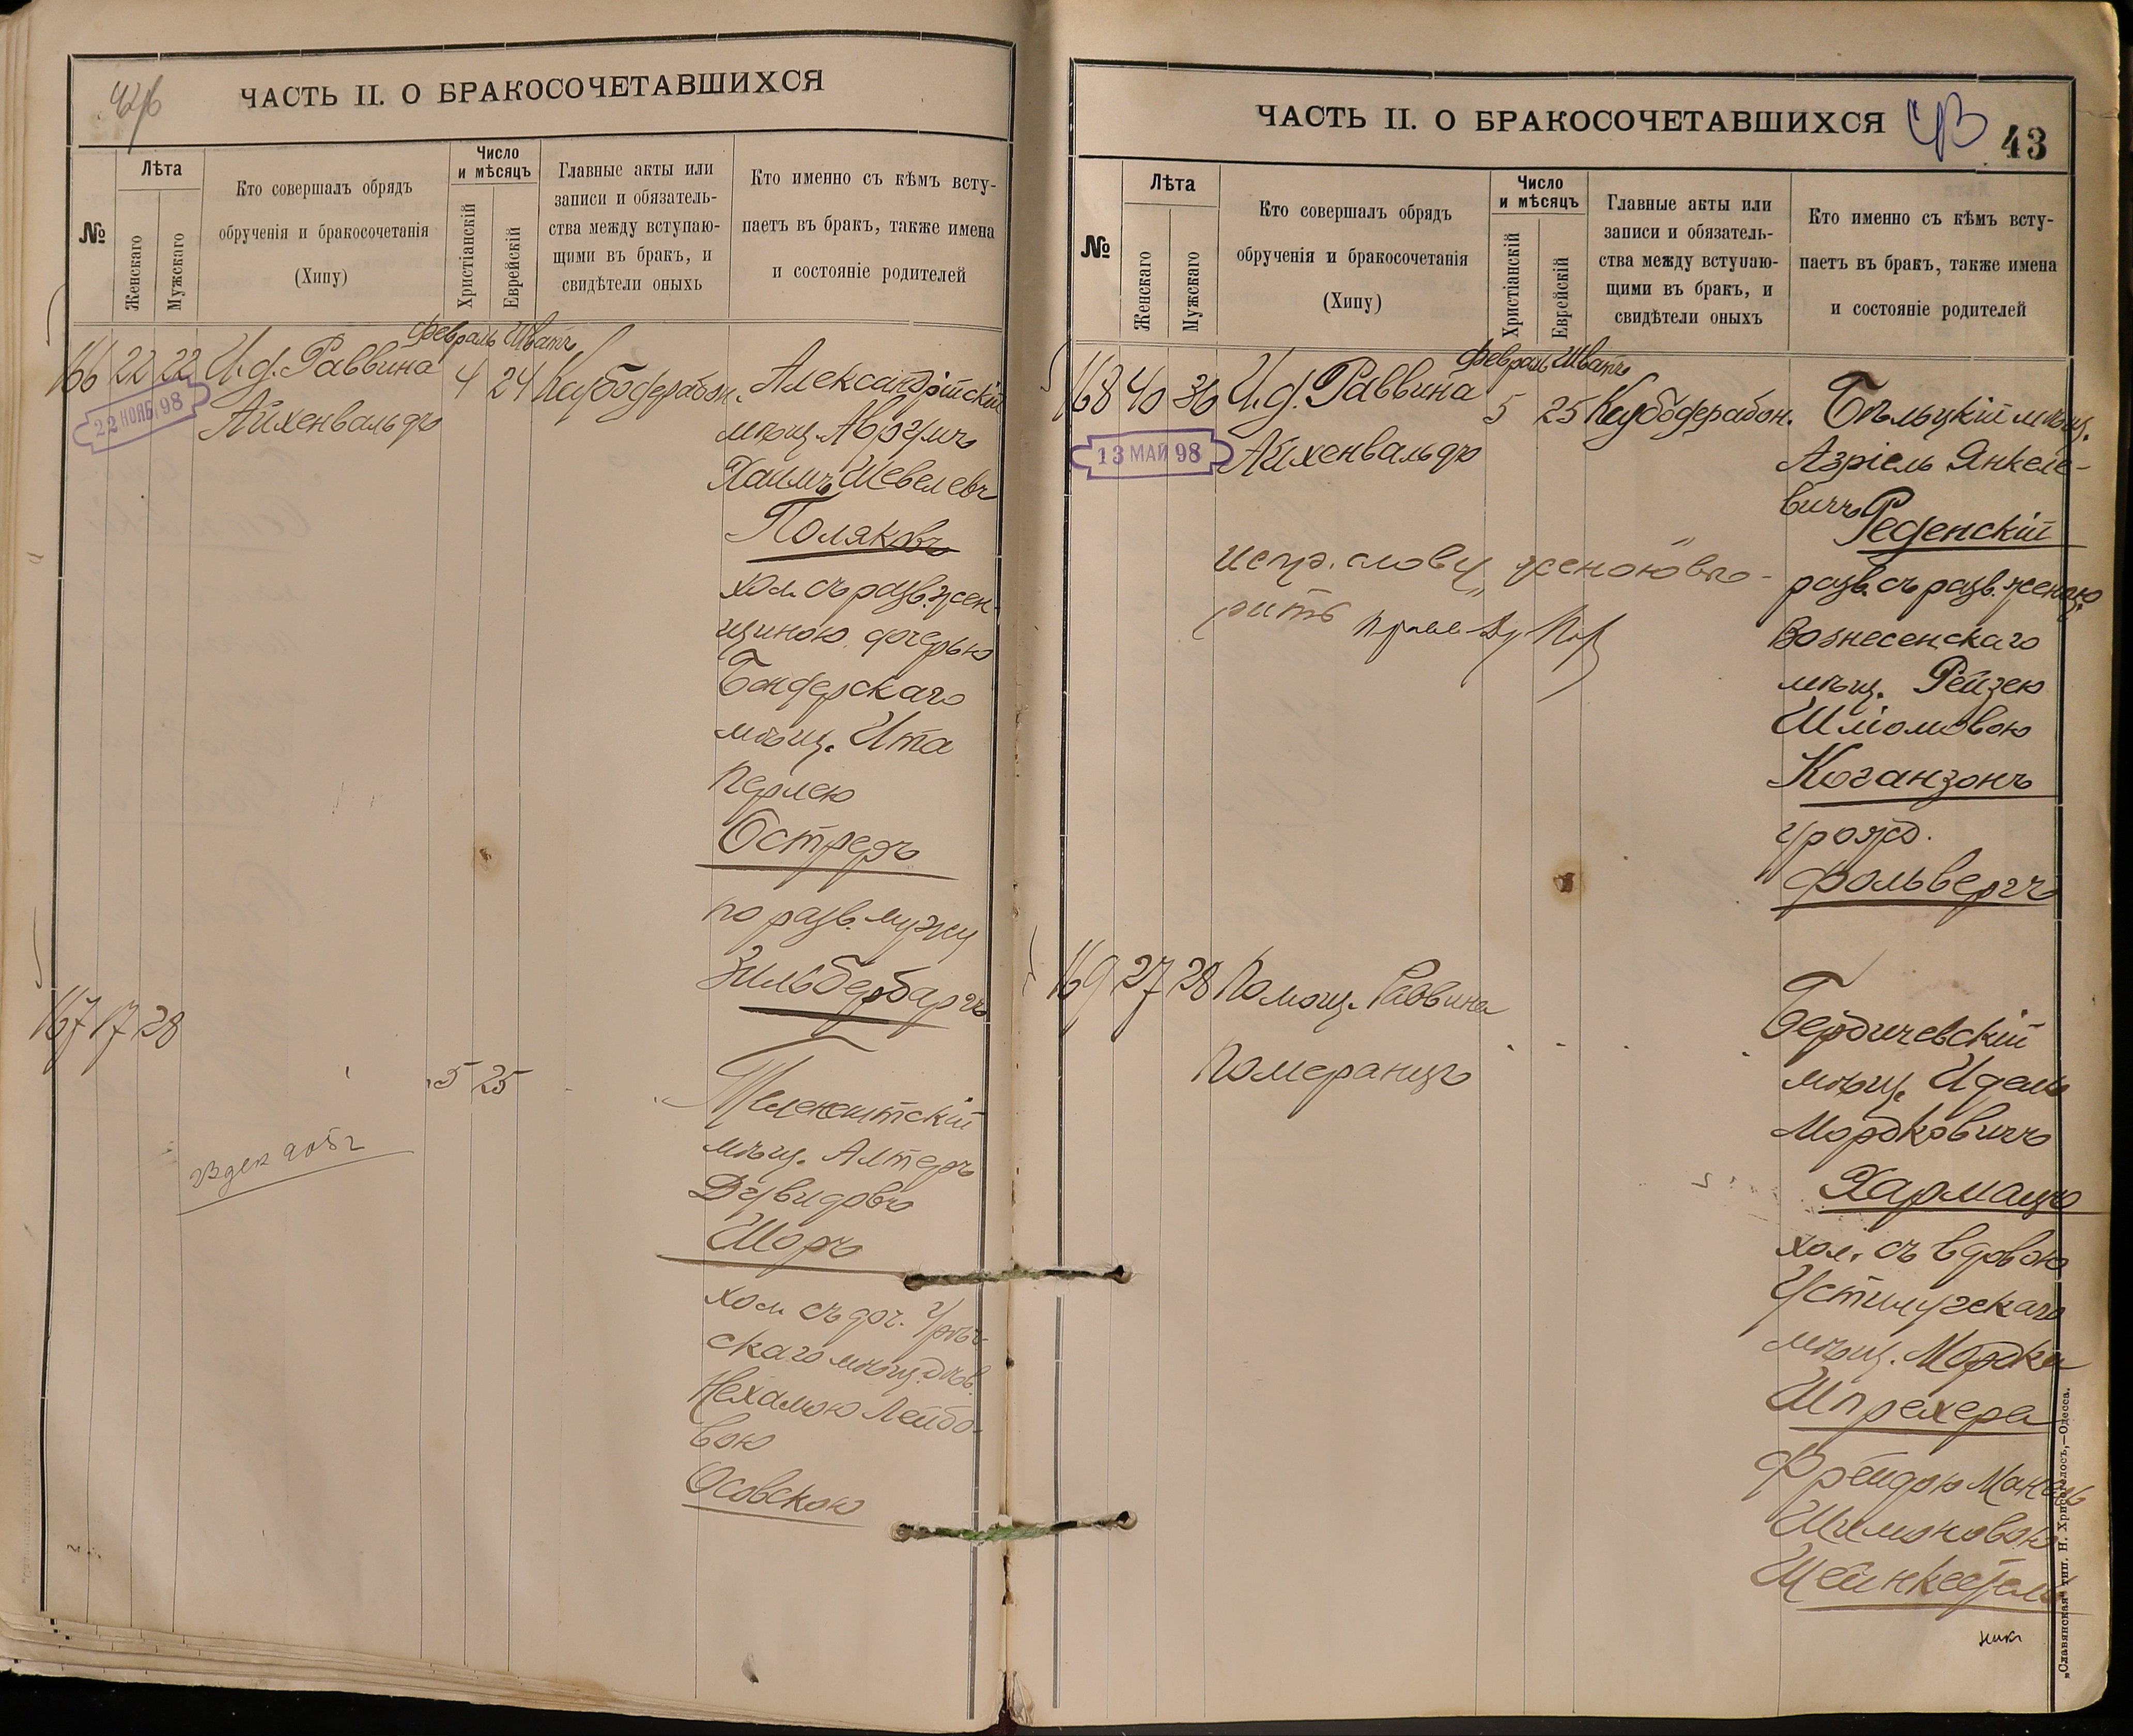 ЧАСТЬ II. О БРАКОСОЧЕТАВШИХСЯ
№
Лѣта
Женскаго
Мужскаго
Кто совершалъ обрядъ
обрученія и бракосочетанія
(Хипу)
Число
и мѣсяцъ
Христіанскій
Еврейскій
Главные акты или
записи и обязатель-
ства между вступаю-
щими въ бракъ, и
свидѣтели оныхъ
Кто именно съ кѣмъ всту-
паетъ въ бракъ, также имена
и состояніе родителей
Февраль Шватъ
166 22 22 И.д. Раввина 4 24
Айхенвальдъ
22 НОЯБ 98
Александрійскій
мѣщ.
Хаимъ Шевелевъ
Поляковъ
хол. съ разв. жен-
щиною дочерью
Бендерскаго
мѣщ. Ита
Перлею
Остреръ
по разв. мужу
Зильбербаргъ
167 17 28
5 25
Теленештскій
мѣщ. Алтеръ
Дувидовъ
Шоръ
хол. съ доч.
скаго мѣщ. дѣв.
Нехамою Лейбо-
вою
Осовскою
ЧАСТЬ II. О БРАКОСОЧЕТАВШИХСЯ
43
№
Лѣта
Женскаго
Мужскаго
Кто совершалъ обрядъ
обрученія и бракосочетанія
(Хипу)
Число
и мѣсяцъ
Христіанскій
Еврейскій
Главные акты или
записи и обязатель-
ства между вступаю-
щими въ бракъ, и
свидѣтели оныхъ
Кто именно съ кѣмъ всту-
паетъ въ бракъ, также имена
и состояніе родителей
Февраль Шватъ
168 40 36 И.д. Раввина 5 25
Айхенвальдъ
13 МАЙ 98
Бѣльцкій мѣщ.
Азріель Янкеле-
вичъ
Реденскій
разв. съ разв. женою
Вознесенскаго
мѣщ. Рейзею
Шліомовою
Коганзонъ
урожд.
Фольвергъ
испр. слову „женою" вѣ-
рить
169 27 28 Помощ. Раввина
Померанцъ
Бердичевскій
мѣщ. Идель
Мордковичъ
Хармацъ
хол. съ вдовою
Устилугскаго
мѣщ. Мордка
Шпрехера
Фрейдою
Шимоновою
„Славянская" тип. Н. Хрисогелосъ,—Одесса.